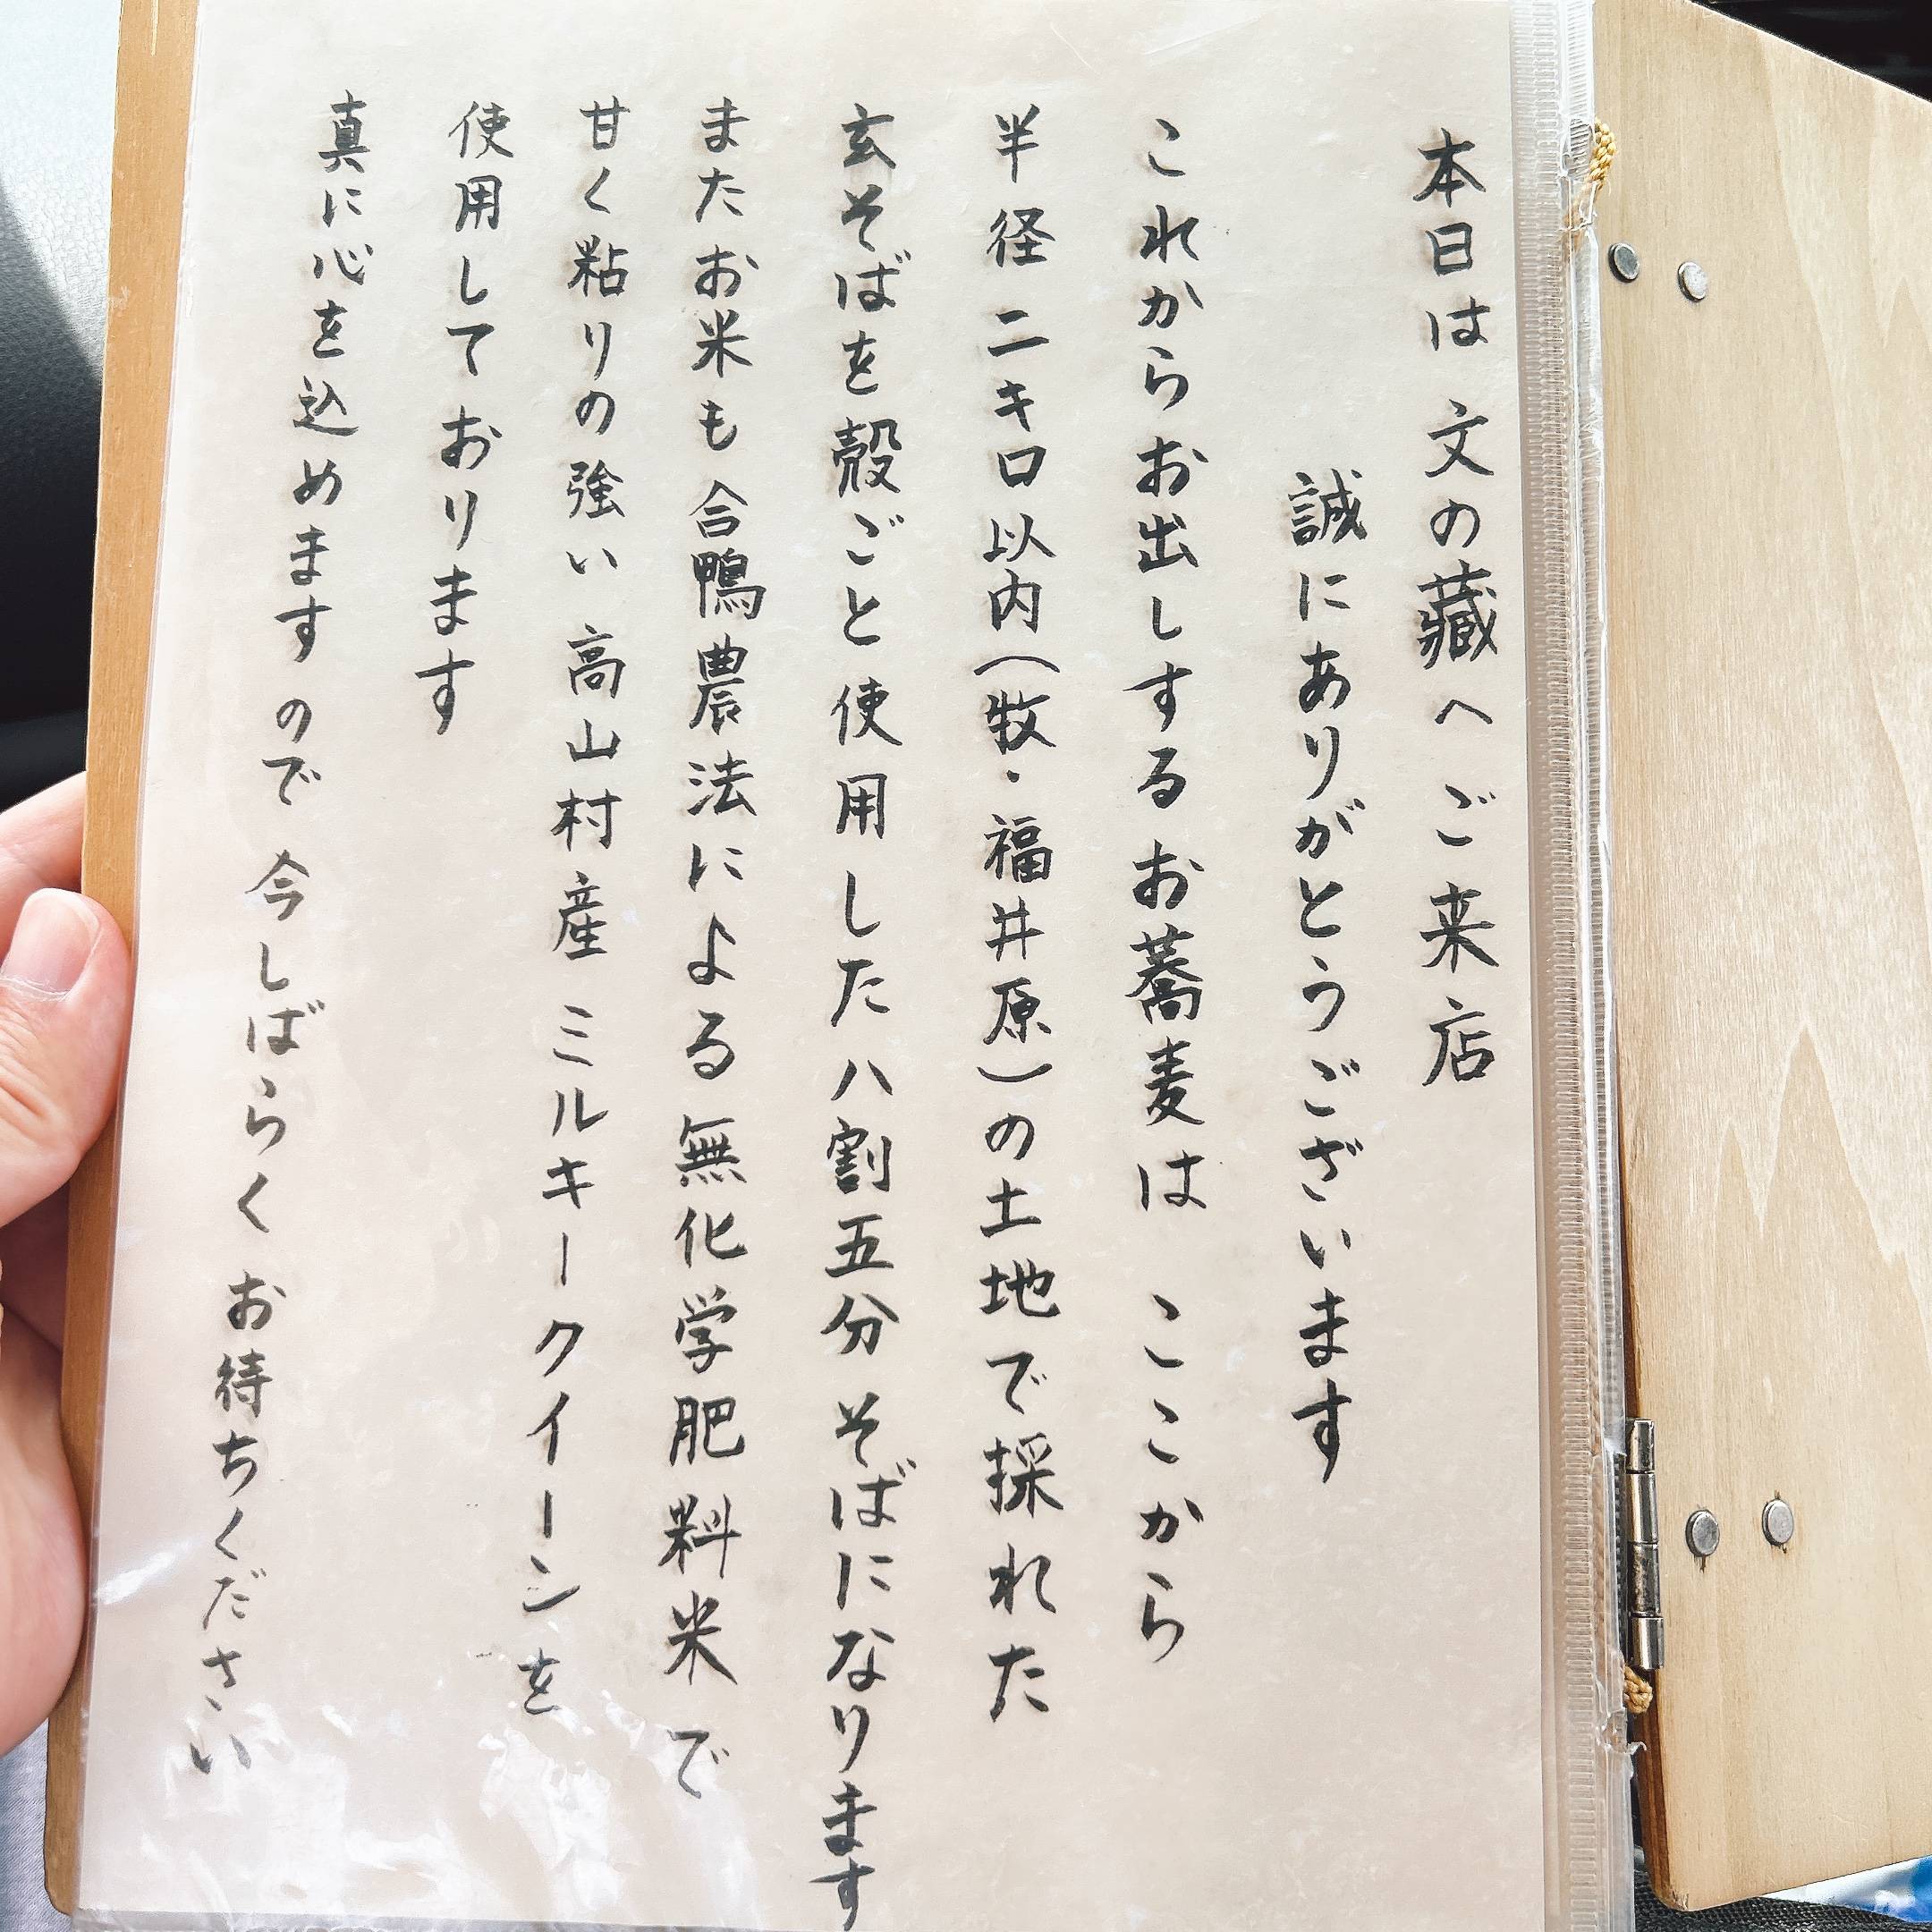 本日は 文の藏へご来店
誠にありがとうございます
これからお出しするお蕎麦は ここから
半径 二キロ以内(牧・福井原)の土地で採れた
玄そばを殻ごと使用した八割五分そばになります
またお米も合鴨農法による無化学肥料米で
甘く粘りの強い高山村産 ミルキークイーンを
使用しております
真に心を込めますので 今しばらくお待ちください